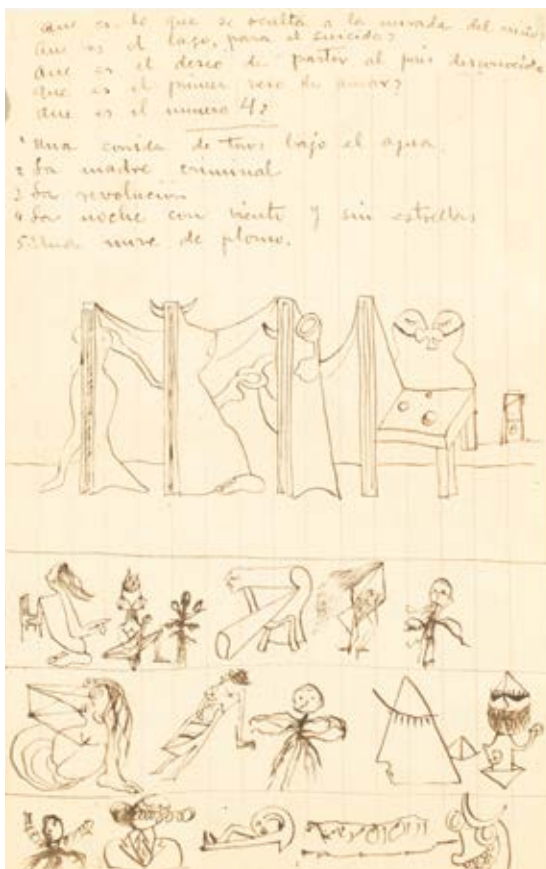 que es lo que se oculta a la mirada del
Que es el lago, para el suicida?
Que es el deseo de partir al pais desconocido
que es el primer beso de amor?
Que es el numero 4?
1 Una corrida de toros bajo el agua
2 La madre criminal
3 La revolucion
4 La noche con viento y sin estrellas
5 Una nuve de plomo.